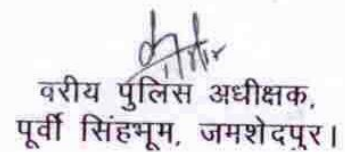 वरीय पुलिस अधीक्षक,
पूर्वी सिंहभूम, जमशेदपुर।